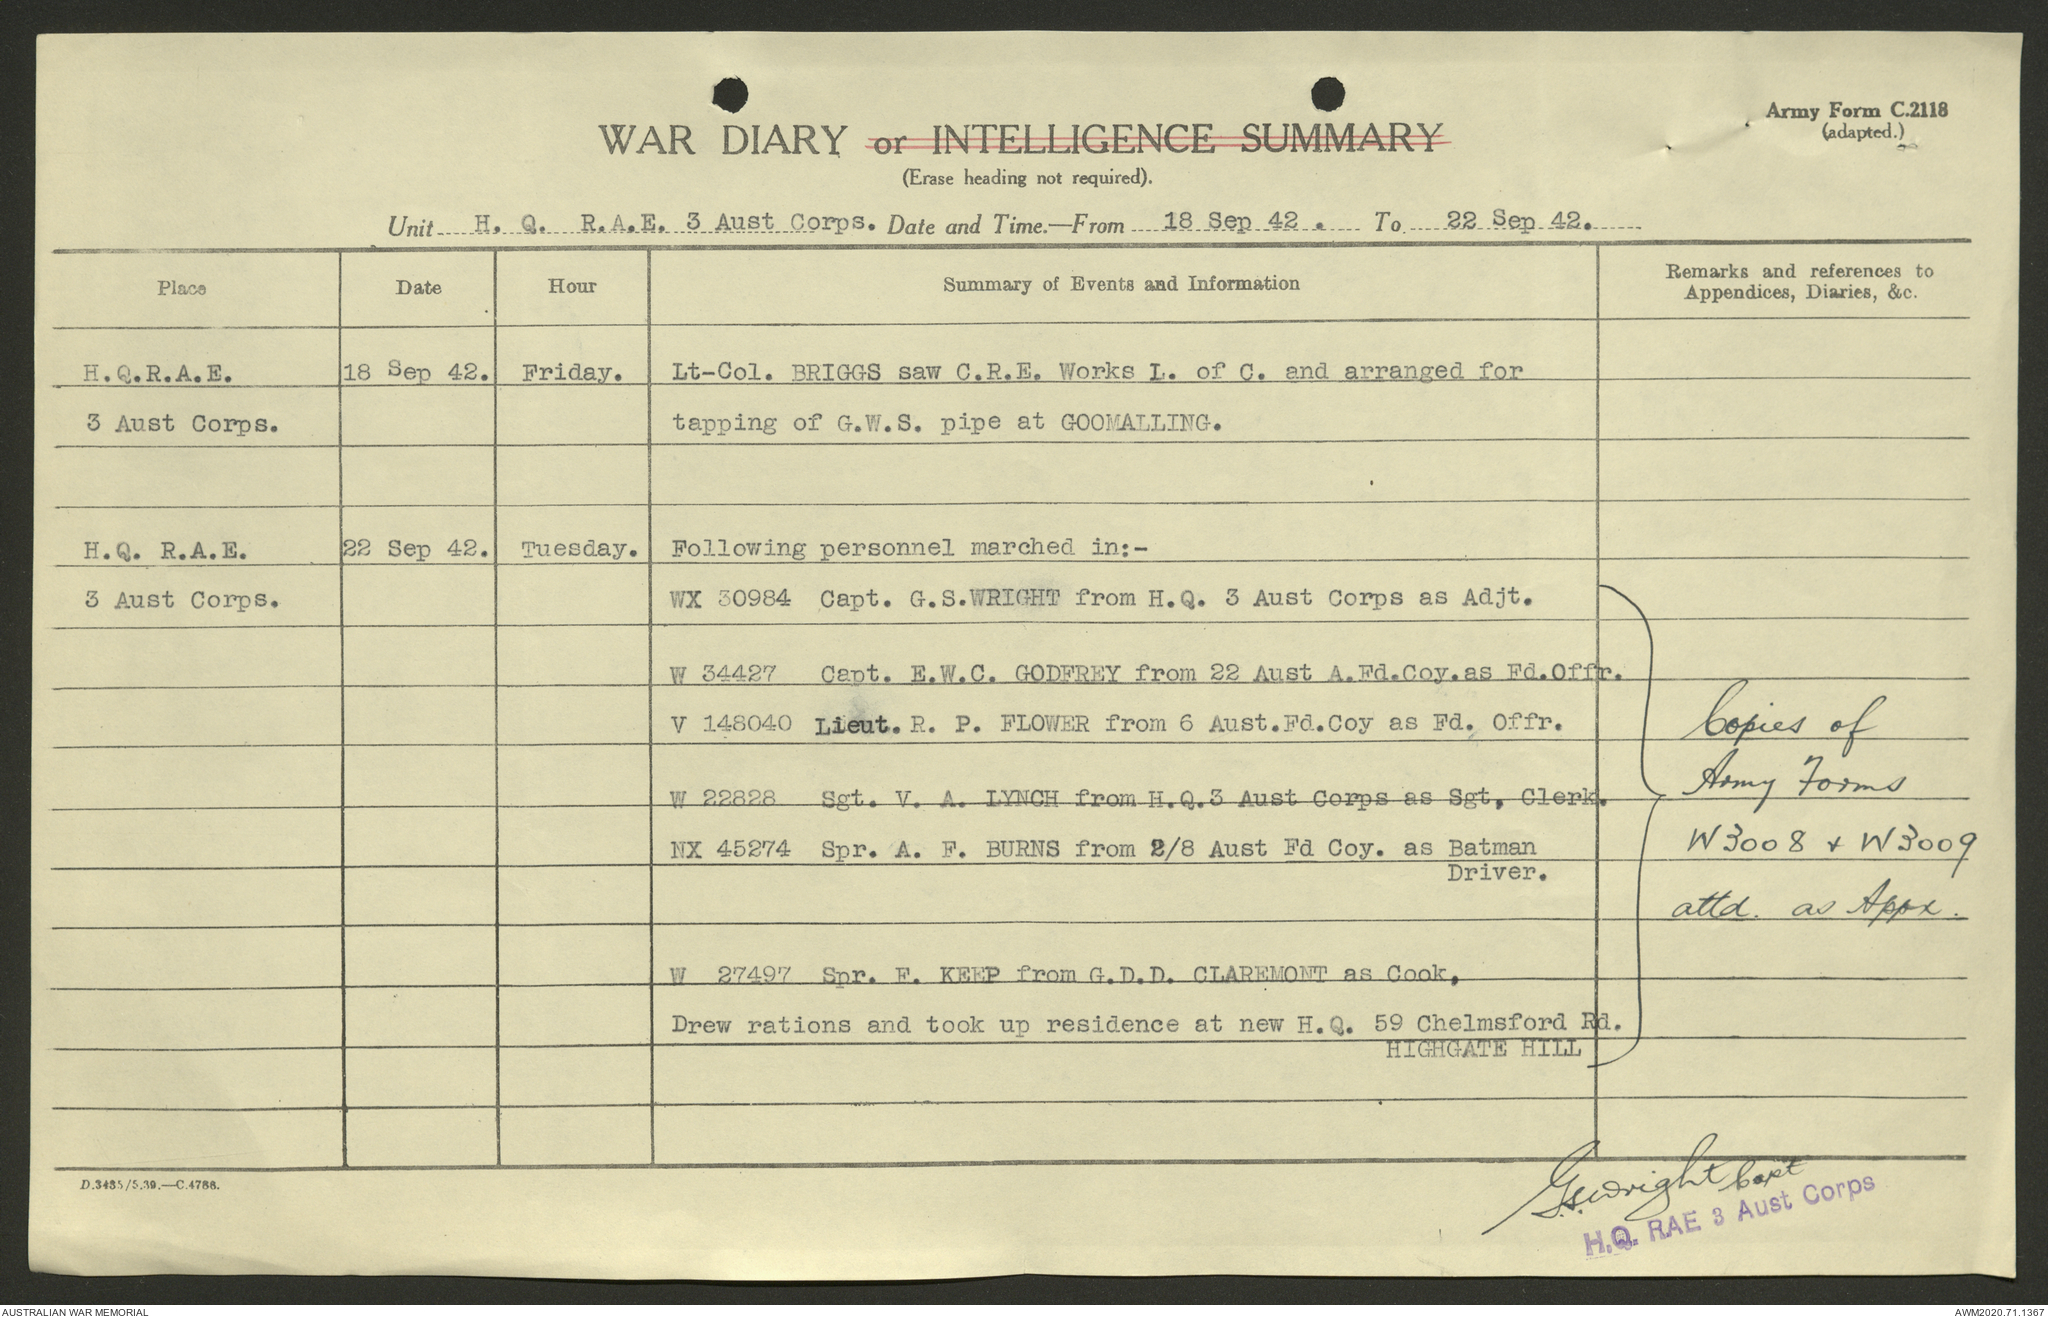 Army Form C.2118
(adapted.)
WAR DIARY or INTELLIGENCE SUMMARY
(Erase heading not required).
Unit H. Q. R.A.E. 3 Aust Corps. Date and Time.—From 18 Sep 42. To 22 Sep 42.
Place Date Hour Summary of Events and Information Remarks and references to
Appendices, Diaries, &c.
H.Q.R.A.E. 18 Sep 42. Friday. Lt-Col. BRIGGS saw C.R.E. Works L. of C. and arranged for
3 Aust Corps. tapping of G.W.S. pipe at GOOMALLING.
H.Q. R.A.E. 22 Sep 42. Tuesday. Following personnel marched in:-
3 Aust Corps. WX 30984 Capt. G.S.WRIGHT from H.Q. 3 Aust Corps as Adjt.
W 34427 Capt. E.W.C. GODFREY from 22 Aust A.Fd.Coy.as Fd.Offr.
V 148040 Lieut. R. P. FLOWER from 6 Aust.Fd.Coy as Fd. Offr.
W 22828 Sgt. V. A. LYNCH from H.Q.3 Aust Corps as Sgt, Clerk.
NX 45274 Spr. A. F. BURNS from 2/8 Aust Fd Coy. as Batman
Driver.
W 27497 Spr. F. KEEP from G.D.D. CLAREMONT as Cook,
Drew rations and took up residence at new H.Q. 59 Chelmsford Rd.
HIGHGATE HILL
Copies of
Army Forms
W3008 + W3009
attd. as Appx.
D.3435/5.39.—C.4786.
G.S.Wright Capt
H.Q. RAE 3 Aust Corps
AUSTRALIAN WAR MEMORIAL
AWM2020.71.1367